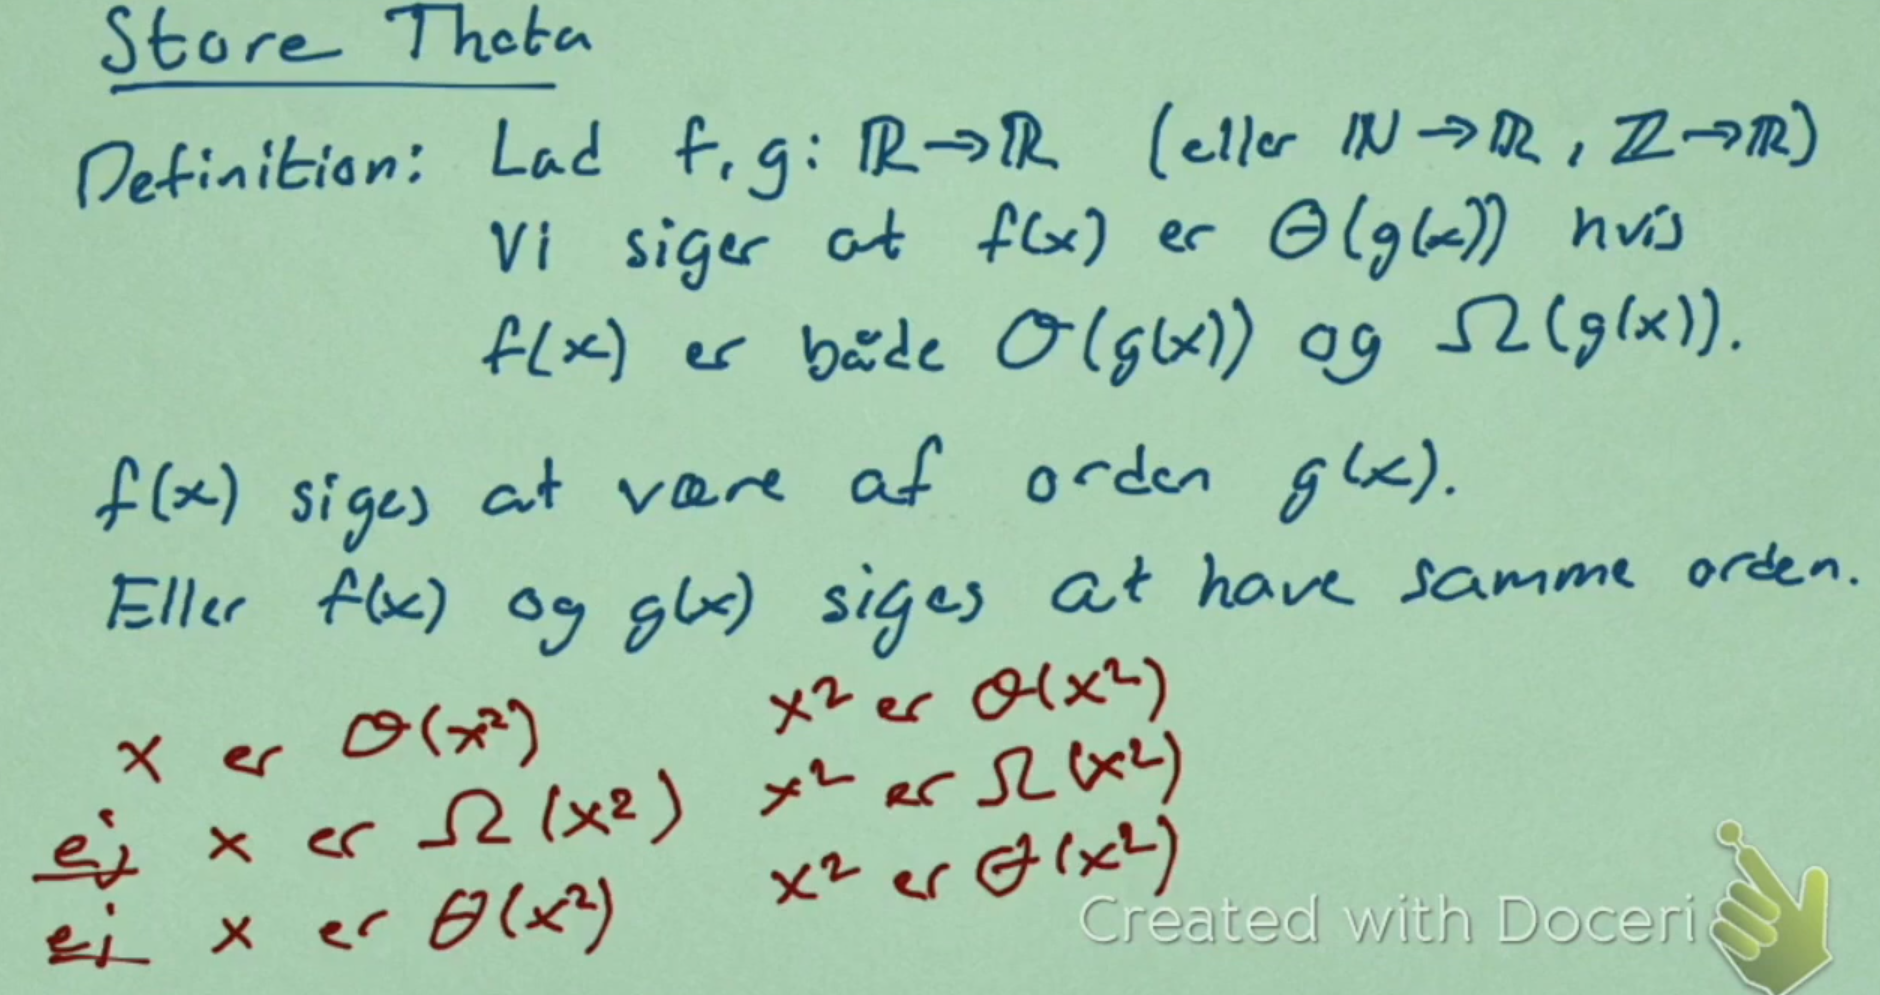 Store Theta
Definition: Lad f, g: ℝ→ℝ (eller ℕ→ℝ, ℤ→ℝ)
Vi siger at f(x) er Θ(g(x)) hvis
f(x) er både O(g(x)) og Ω(g(x)).
f(x) siges at være af orden g(x).
Eller f(x) og g(x) siges at have samme orden.
x er O(x²)
ej x er Ω(x²)
ej x er Θ(x²)
x² er O(x²)
x² er Ω(x²)
x² er Θ(x²)
Created with Doceri